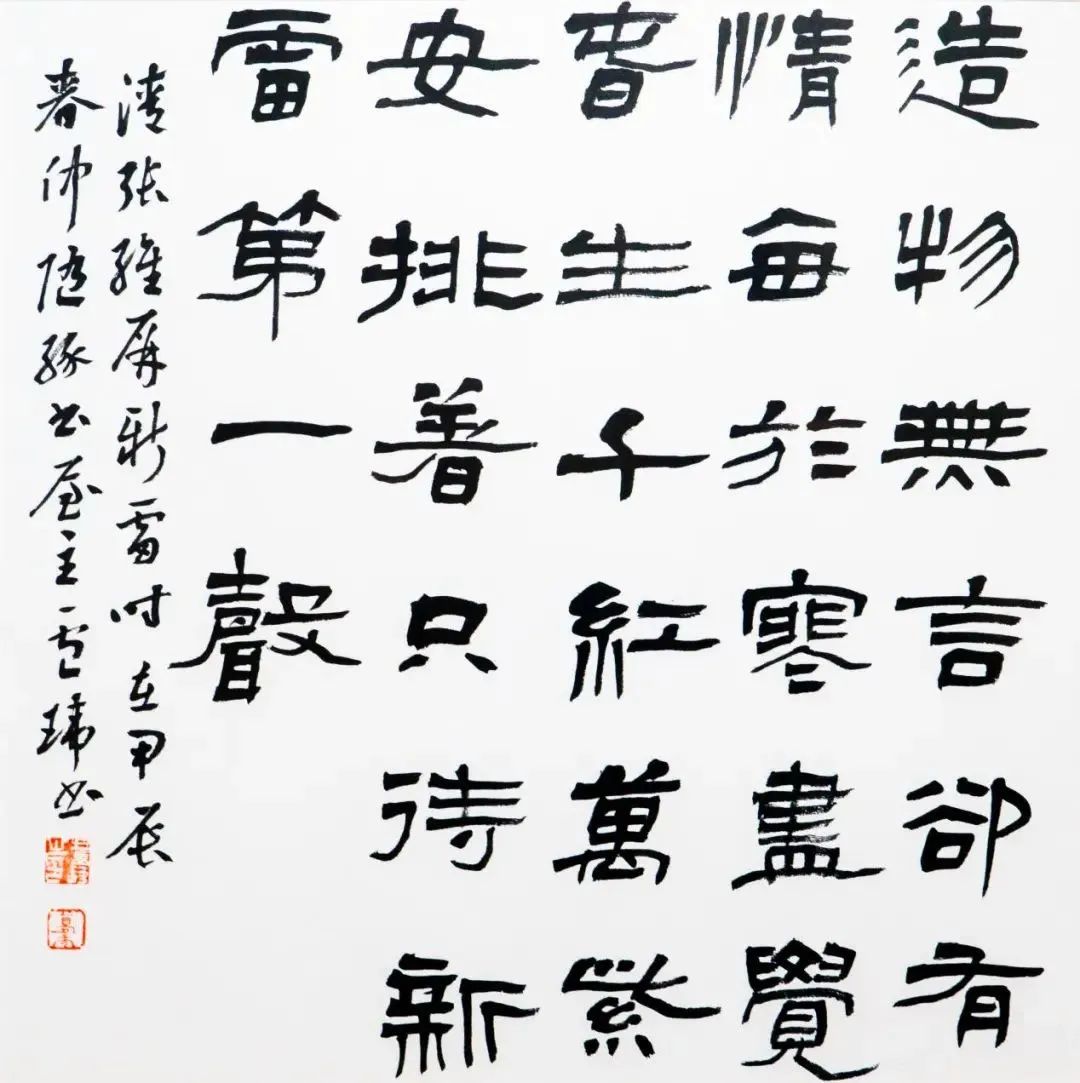 造物無言卻有
情每於寒盡覺
春生千紅萬紫
安排着只待新
雷第一聲
清張維屏新雷时在甲辰
春仲隨緣書屋主瑋書